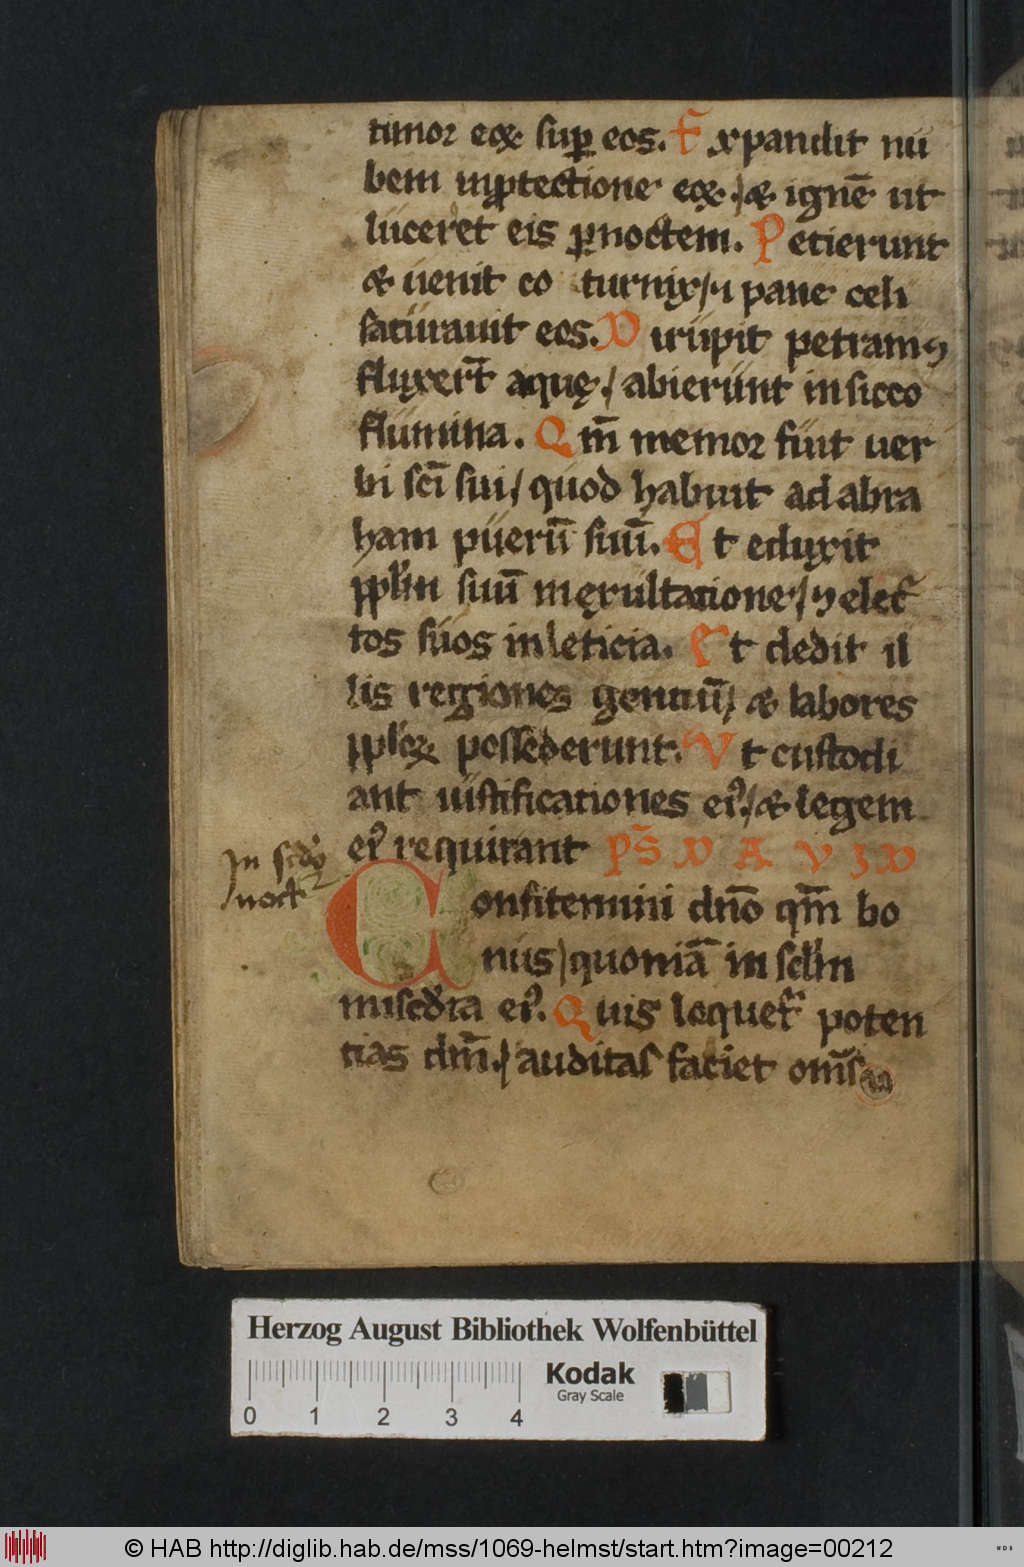 timor eoꝝ suꝑ eos. Expandit nu
bem inꝓtectione eoꝝ. / ⁊ ignē ut
luceret eis ꝑnoctem. Petierunt
⁊ uenit co turnix / ⁊ pane celi
saturauit eos. Dirupit petram ⁊
fluxer̄t aquę. / abierunt in sicco
flumina. Qm̄ memor fuit uer
bi sc̄i sui / quod habuit ad abra
ham puerū suū. Et eduxit
ppl̄m suū in exultatione / ⁊ elec
tos suos in leticia. Et dedit il
lis regiones gentiū / ⁊ labores
pplōꝝ possederunt. Vt custodi
ant iustificationes eiꝰ. / ⁊ legem
eiꝰ requirant
In scd̄o
noct
Confitemini dn̄o qm̄ bo
nus / quoniā in scl̄m
misc̄dia eiꝰ. Quis loquet᷑ poten
tias dn̄i. / auditas faciet om̄s
Herzog August Bibliothek Wolfenbüttel
Kodak
Gray Scale
0 1 2 3 4
© HAB http://diglib.hab.de/mss/1069-helmst/start.htm?image=00212